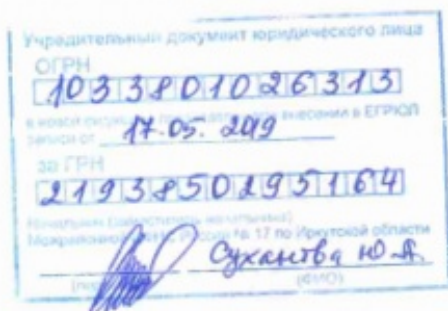 Учредительный документ юридического лица
ОГРН
1033801026313
в новой редакции представлен при внесении в ЕГРЮЛ
записи от 17.05. 2019
за ГРН
2193850295164
Начальник (заместитель начальника)
Межрайонной России № 17 по Иркутской области
Ю.А.
(ФИО)